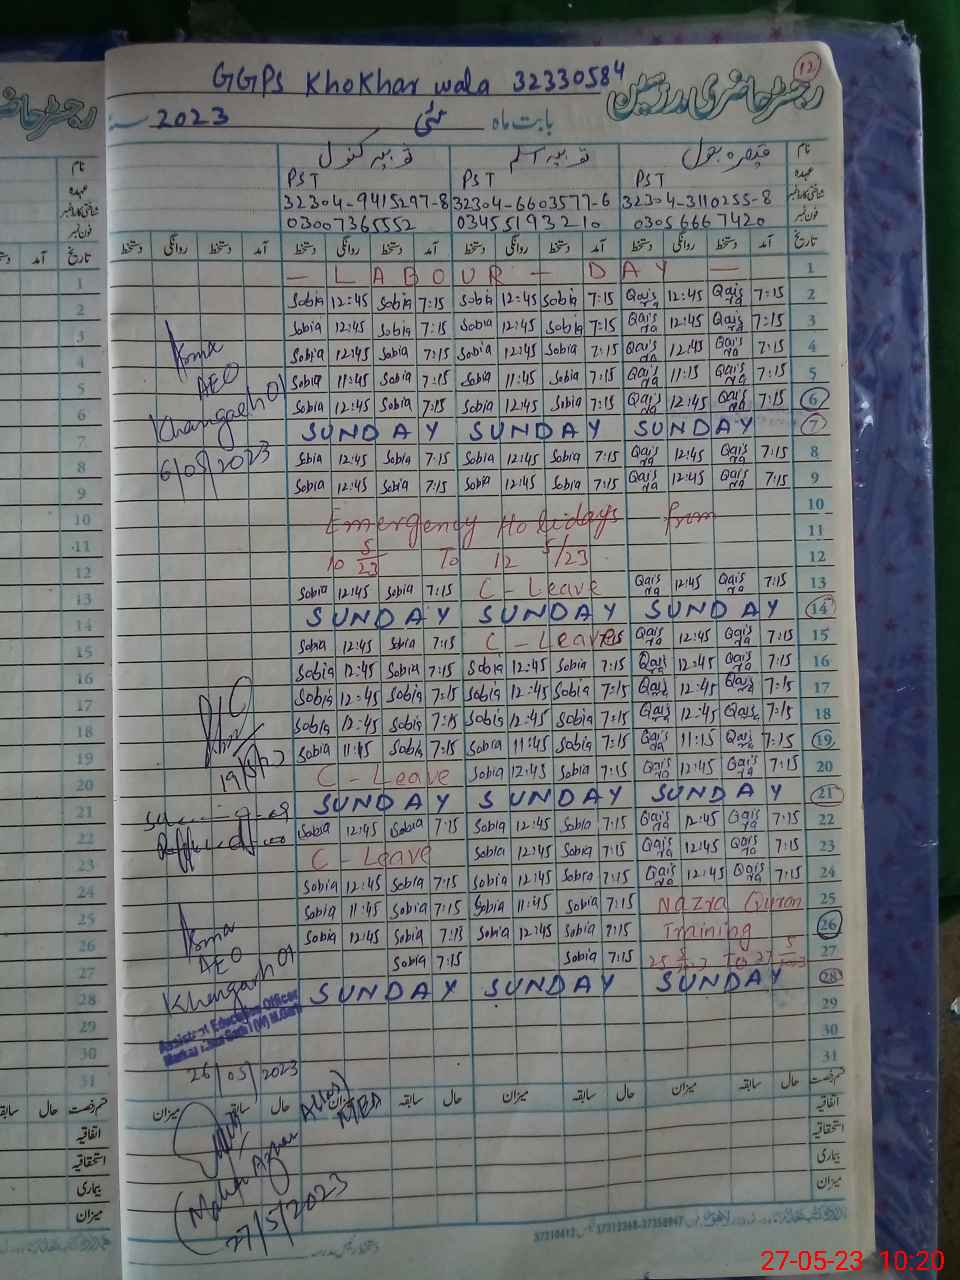 12
GGPS Khokhar wala 32330584
رجسٹر حاضری مدرسین
2023 مئی بابت ماہ
نام
عہدہ PST PST PST
شناختی کارڈ نمبر 32304-9415297-8 32304-6603577-6 32304-3110255-8
فون نمبر 03007365552 03455193210 03056667420
دستخط روانگی دستخط آمد دستخط روانگی دستخط آمد دستخط روانگی دستخط آمد تاریخ
— LABOUR — DAY — 1
Sobia 12:45 Sobia 7:15 Sobia 12:45 Sobia 7:15 Qais ra 12:45 Qais ra 7:15 2
Sobia 12:45 Sobia 7:15 Sobia 12:45 Sobia 7:15 Qais ra 12:45 Qais ra 7:15 3
Sobia 12:45 Sobia 7:15 Sobia 12:45 Sobia 7:15 Qais ra 12:45 Qais ra 7:15 4
Sobia 11:45 Sobia 7:15 Sobia 11:45 Sobia 7:15 Qais ra 11:15 Qais ra 7:15 5
Sobia 12:45 Sobia 7:15 Sobia 12:45 Sobia 7:15 Qais ra 12:45 Qais ra 7:15 6
SUNDAY SUNDAY SUNDAY 7
Sobia 12:45 Sobia 7:15 Sobia 12:45 Sobia 7:15 Qais ra 12:45 Qais ra 7:15 8
Sobia 12:45 Sobia 7:15 Sobia 12:45 Sobia 7:15 Qais ra 12:45 Qais ra 7:15 9
10
Emergency Holidays from 11
10 5/23 To 12 5/23 12
Sobia 12:45 Sobia 7:15 C - Leave Qais ra 12:45 Qais ra 7:15 13
SUNDAY SUNDAY SUNDAY 14
Sobia 12:45 Sobia 7:15 C - Leave 7:15 Qais ra 12:45 Qais ra 7:15 15
Sobia 12:45 Sobia 7:15 Sobia 12:45 Sobia 7:15 Qais ra 12:45 Qais ra 7:15 16
Sobia 12:45 Sobia 7:15 Sobia 12:45 Sobia 7:15 Qais ra 12:45 Qais ra 7:15 17
Sobia 12:45 Sobia 7:15 Sobia 12:45 Sobia 7:15 Qais ra 12:45 Qais ra 7:15 18
Sobia 11:45 Sobia 7:15 Sobia 11:45 Sobia 7:15 Qais ra 11:15 Qais ra 7:15 19
C - Leave Sobia 12:45 Sobia 7:15 Qais ra 12:45 Qais ra 7:15 20
SUNDAY SUNDAY SUNDAY 21
Sobia 12:45 Sobia 7:15 Sobia 12:45 Sobia 7:15 Qais ra 12:45 Qais ra 7:15 22
C - Leave Sobia 12:45 Sobia 7:15 Qais ra 12:45 Qais ra 7:15 23
Sobia 12:45 Sobia 7:15 Sobia 12:45 Sobia 7:15 Qais ra 12:45 Qais ra 7:15 24
Sobia 11:45 Sobia 7:15 Sobia 11:45 Sobia 7:15 Nazra Quran 25
Sobia 12:45 Sobia 7:15 Sobia 12:45 Sobia 7:15 Training 26
Sobia 7:15 Sobia 7:15 27
SUNDAY SUNDAY SUNDAY 28
29
30
31
Asma
AEO
Khangarh 01
6/05/2023
19/5/23
Asma
AEO
Khangarh 01
Assistant Education Officer
26/05/2023
MEA
27/5/2023
میزان سابقہ حال میزان سابقہ حال میزان سابقہ حال قسم رخصت
اتفاقیہ
استحقاقیہ
بیماری
میزان
27-05-23 10:20